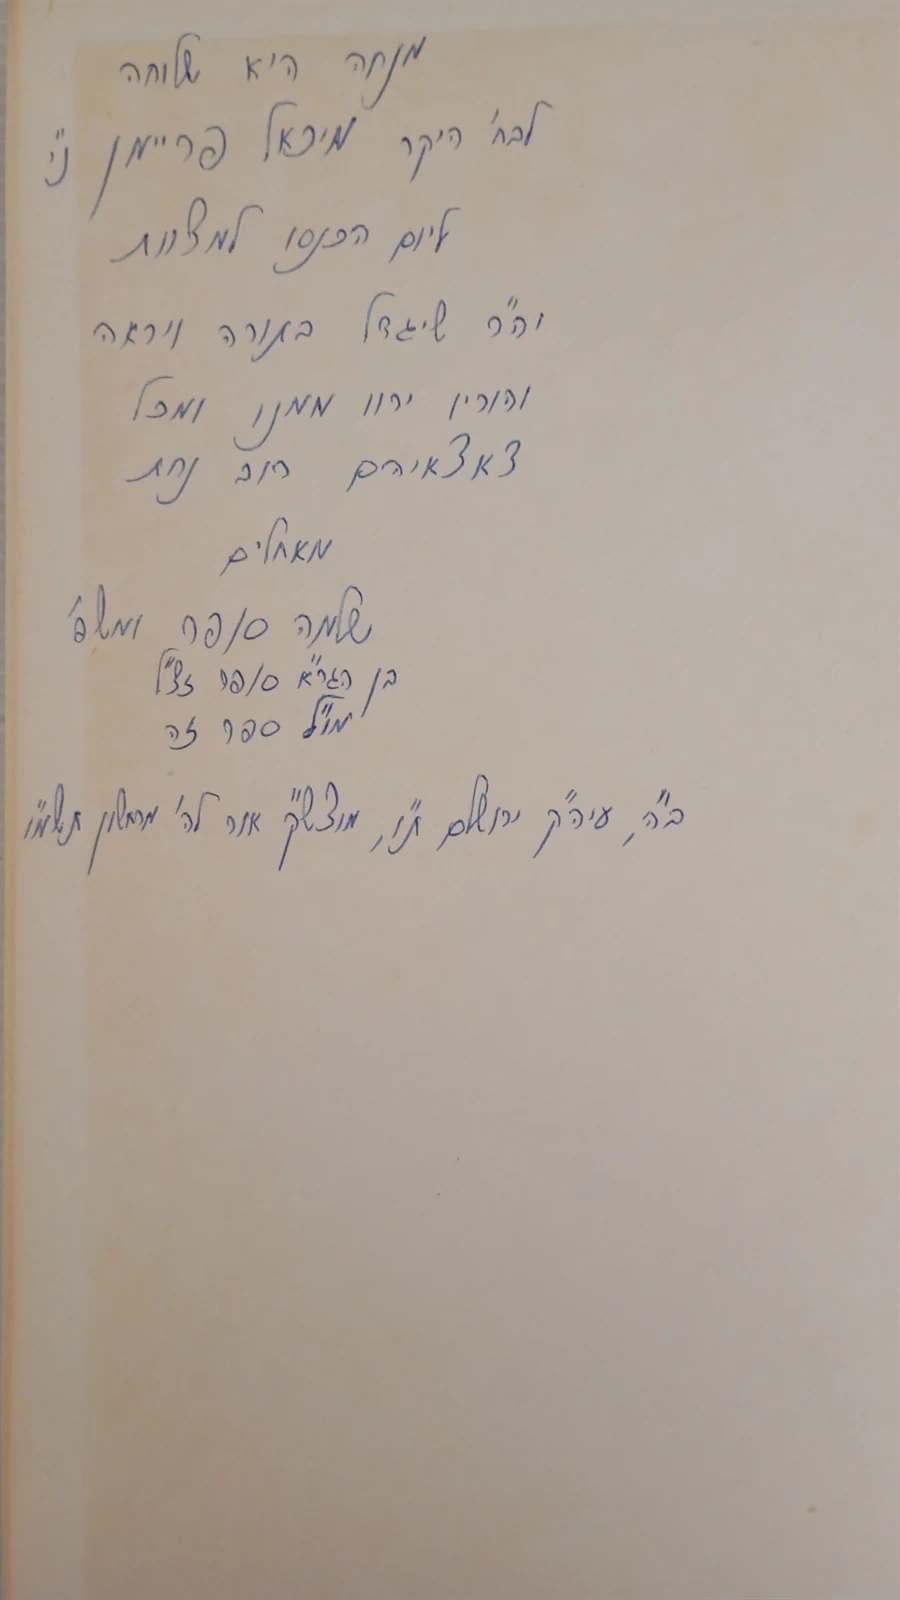 מנחה היא שלוחה
לבח' היקר מיכאל פריימן נ"י
ליום הכנסו למצוות
ויה"ר שיגדל בתורה ויראה
והורין ירוו ממנו ומכל
צאצאיהם רוב נחת
מאחלים
שלמה סופר ומשפ'
בן הגר"א סופר זצ"ל
מו"ל ספר זה
ב"ה, עיה"ק ירושלם ת"ו, מוצש"ק אור לה' מרחשון תשמ"ו